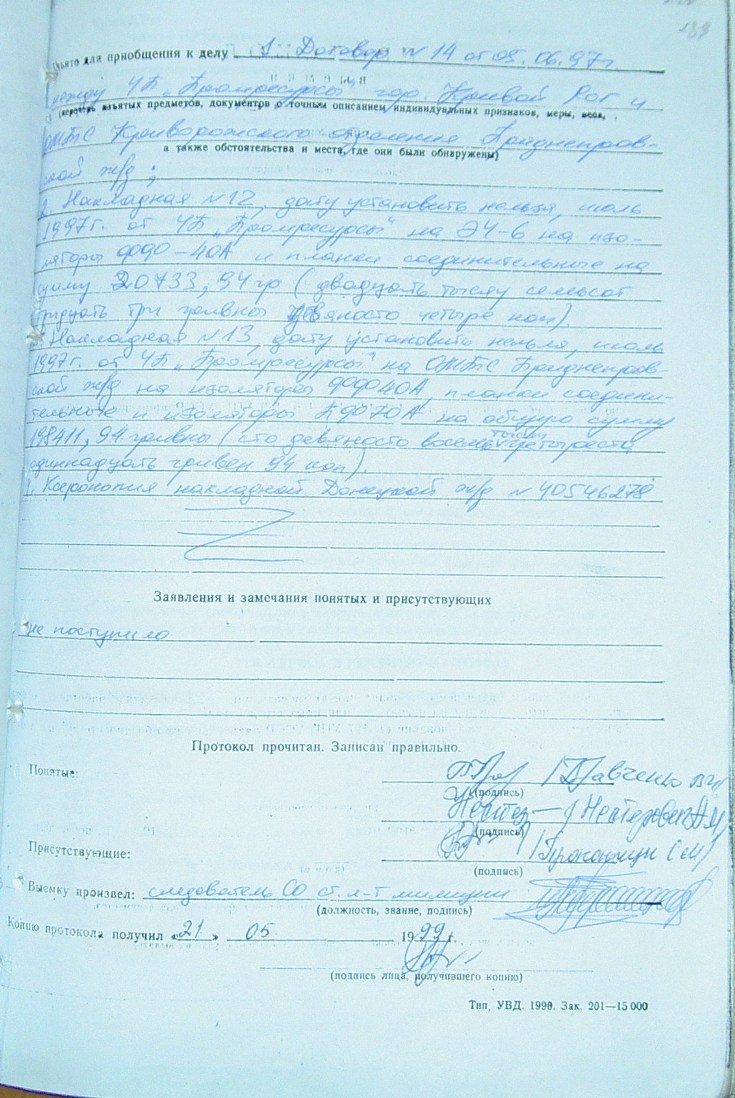 188
Изъято для приобщения к делу 1. Договор N 14 от 05.06.97г.
между ЧП „Промресурсы" гор. Кривой Рог и
(перечень изъятых предметов, документов с точным описанием индивидуальных признаков, меры, веса,
ОМТС Криворожского отделения Приднепров-
а также обстоятельства и места, где они были обнаружены)
ской ж/д ;
2. Накладная N 12, дату установить нельзя, июль
1997г. от ЧП „Промресурсы" на ЭЧ-6 на изо-
ляторы ФФ40-40А и планки соединительные на
сумму 20733,94 гр (двадцать тысяч семьсот
тридцать три гривны девяносто четыре коп).
3. Накладная N 13, дату установить нельзя, июль
1997г. от ЧП „Промресурсы" на ОМТС Приднепров-
ской ж/д на изоляторы 40А, планки соедини-
тельные и изоляторы 70А на общую сумму
198411,94 гривны (сто девяносто восемь тысяч четыреста
одиннадцать гривен 94 коп).
4. Ксерокопия накладной Донецкой ж/д N 40546278
Заявления и замечания понятых и присутствующих
не поступило
Протокол прочитан. Записан правильно.
Понятые:
(подпись)
(подпись)
Присутствующие:
(подпись)
Выемку произвел: следователь СО ст. л-т милиции
(должность, звание, подпись)
Копию протокола получил «21» 05 1999 г.
(подпись лица, получившего копию)
Тип. УВД. 1990. Зак. 201—15 000